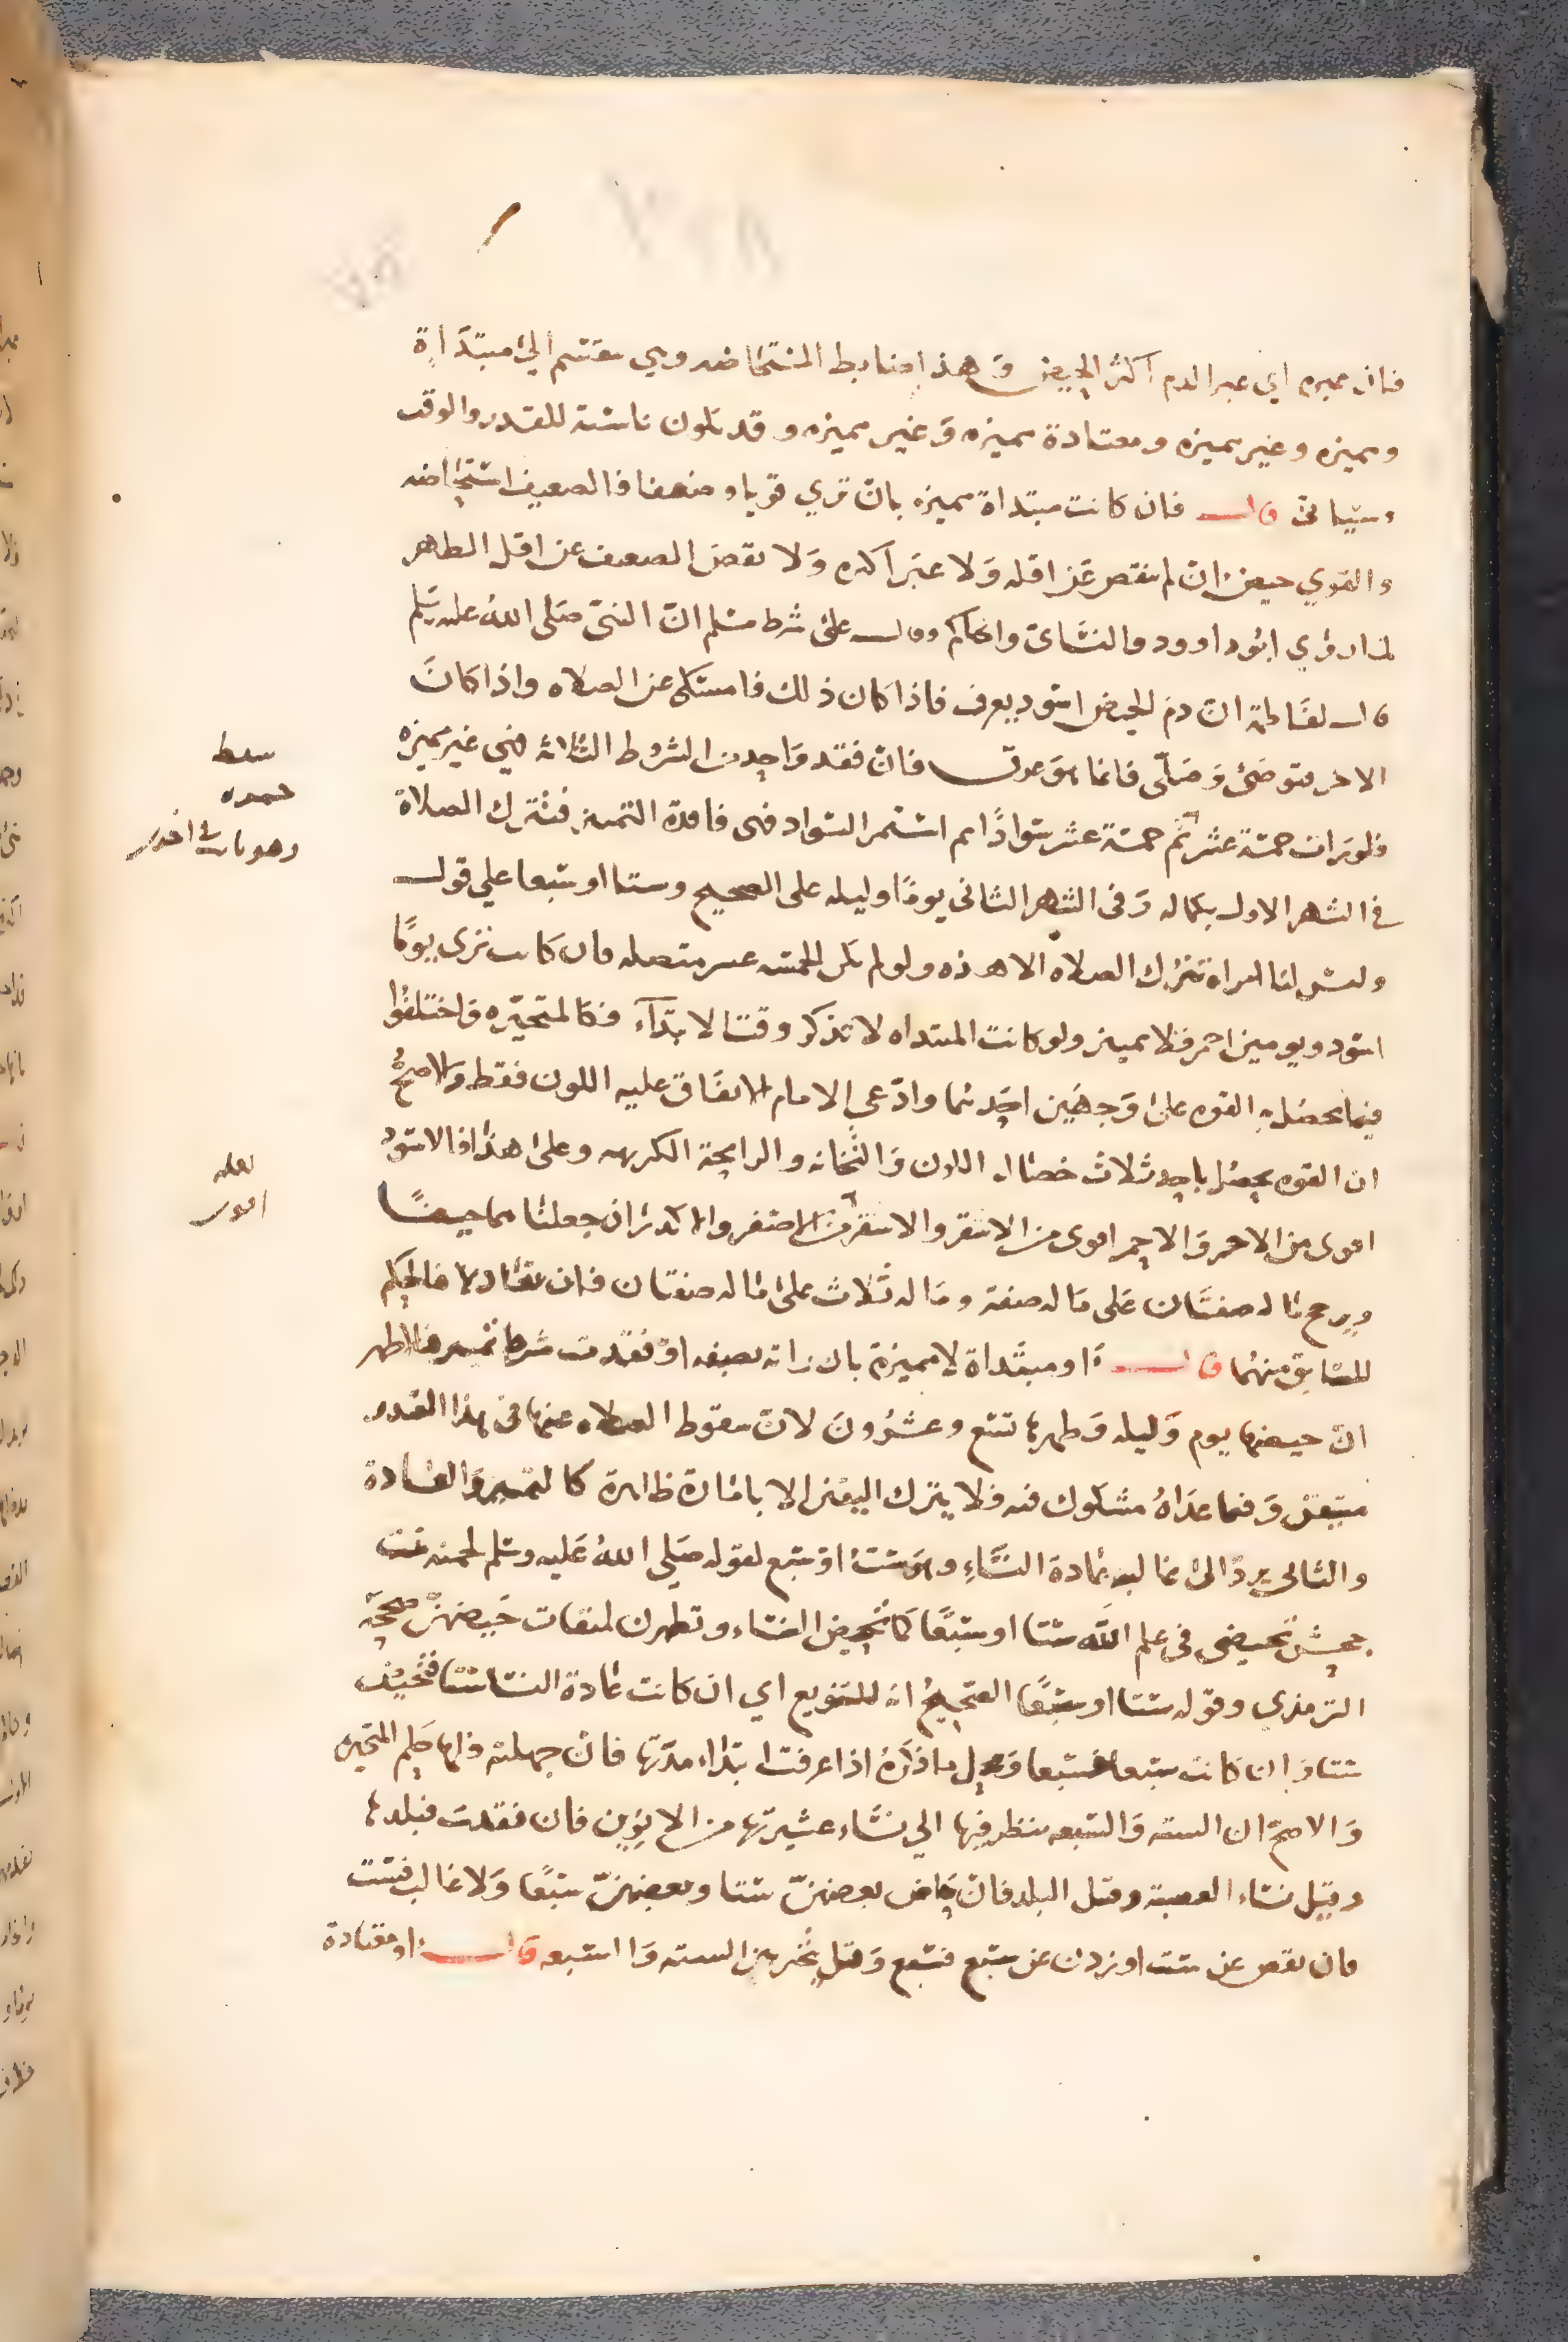 فان عبره اي عبر الدم اكثر الحيض وهذا ضابط المستحاضه وهي تنقسم الى مبتداة
ومميزه وغير مميزه ومعتادة مميزه وغير مميزه وقد تكون ناسية للقدر والوقت
وسياتي قال فان كانت مبتداة مميزه بان تري قويا وضعيفا فالضعيف استحاضه
والقوي حيض ان لم ينقص عن اقله ولا عبر اكثره ولا نقص الضعيف عن اقل الطهر
لما روي ابو داوود والنسائي والحاكم وقال على شرط مسلم ان النبي صلى الله عليه وسلم
قال لفاطمة ان دم الحيض اسود يعرف فاذا كان ذلك فامسكي عن الصلاه واذا كان
الاخر فتوضئ وصلي فانما هو عرق فان فقد واحد من الشروط الثلاثة فهي غير مميزه
فلو رات خمسة عشر ثم خمسة عشر سوادًا ثم استمر السواد فهي فاقدة التمييز فتترك الصلاة
في الشهر الاول بكماله وفي الشهر الثاني يومًا وليله على الصحيح وستا او سبعا علي قول
وليس لنا امراة تترك الصلاه الا هذه ولو لم تكن الخمسه عشر متصله فان كانت ترى يومًا
اسود ويومين احمر فلا تمييز ولو كانت المبتداه لا تذكر وقت الابتدآء فكالمتحيره واختلفوا
فيما تحصل به القوه على وجهين احدهما وادعي الامام الاتفاق عليه اللون فقط والاصح
ان القوه تحصل باحد ثلاث خصال اللون والثخانه والرايحة الكريهه وعلى هذا فالاسود
اقوى من الاحمر والاحمر اقوى من الاشقر والاشقر من الاصفر والاكدر ان جعلناهما حيضًا
ويرجح ما له صفتان على ما له صفة وما له ثلاث على ما له صفتان فان تعادلا فالحكم
للسابق منهما قال او مبتداة لا مميزة بان راته بصفه او فقدت شرط تمييز فالاظهر
ان حيضها يوم وليله وطهرها تسع وعشرون لان سقوط الصلاه عنها في هذا القدر
متيقن وفيما عداه مشكوك فيه فلا يترك اليقين الا بامارة ظاهرة كالتمييز والعادة
والثاني يرد الى غالب عادة النساء وهو ست او سبع لقوله صلى الله عليه وسلم لحمنه بنت
جحش تحيضي في علم الله ستا او سبعًا كما تحيض النساء وتطهرن لميقات حيضهن صححه
الترمذي وقوله ستا او سبعًا الصحيح انه للتنويع اي ان كانت عادة النسا ستا فتحيض
ستا وان كانت سبعا فسبعا ومحل ما ذكره اذا عرفت ابتداء مدتها فان جهلته فلها حكم المتحيره
والاصح ان السته والسبعه ينظر فيها الي نساء عشيرتها من الابوين فان فقدت فبلدها
وقيل نساء العصبة وقيل البلد فان حاض بعضهن ستا وبعضهن سبعًا ولا غالب فست
فان نقص عن ست او زدن عن سبع فسبع وقيل تخير بين السته والسبعه قال او معتادة
سقط
حمره
وهو ثابت في اخرى
لعله